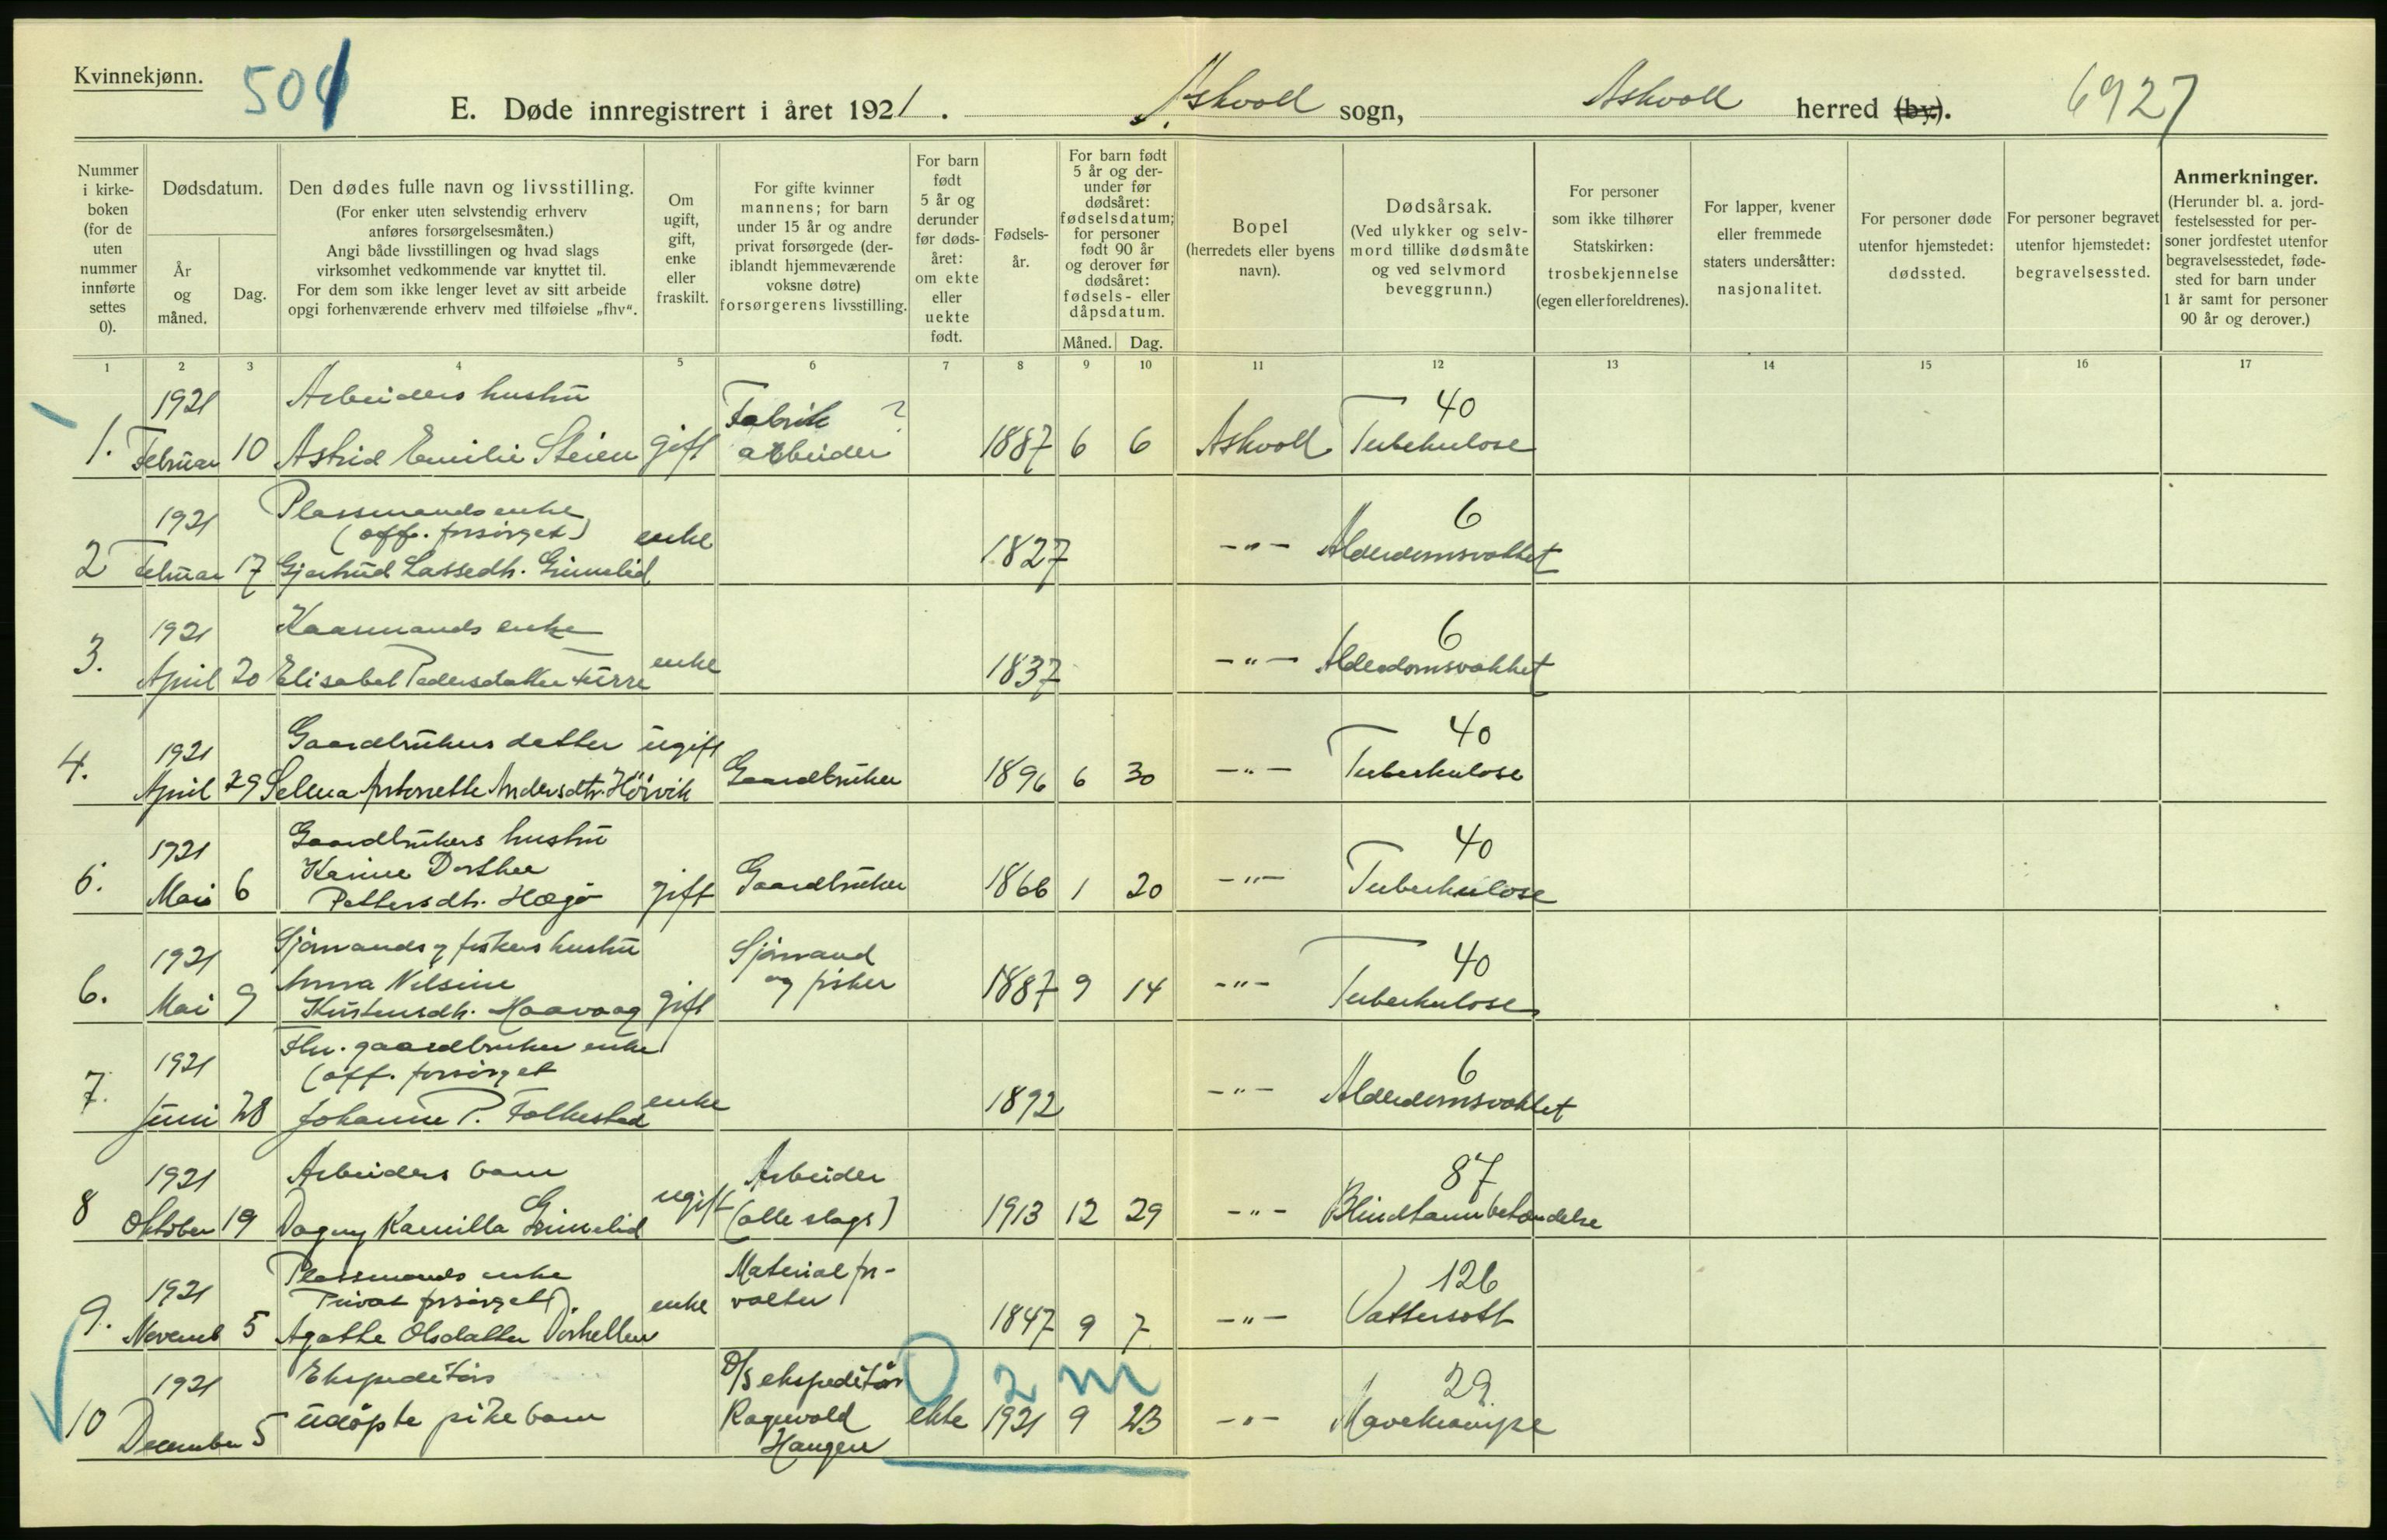 Kvinnekjønn.
504
E. Døde innregistrert i året 1921.
Askvoll sogn,
Askvoll herred (by).
6927
Nummer i kirke-boken (for de uten nummer innførte settes 0).
Dødsdatum.
År og måned.
Dag.
Den dødes fulle navn og livsstilling.
(For enker uten selvstendig erhverv anføres forsørgelsesmåten.)
Angi både livsstillingen og hvad slags virksomhet vedkommende var knyttet til.
For dem som ikke lenger levet av sitt arbeide opgi forhenværende erhverv med tilføielse „fhv“.
Om ugift, gift, enke eller fraskilt.
For gifte kvinner mannens; for barn under 15 år og andre privat forsørgede (deriblandt hjemmeværende voksne døtre) forsørgerens livsstilling.
For barn født 5 år og derunder før dødsåret: om ekte eller uekte født.
Fødselsår.
For barn født 5 år og derunder før dødsåret: fødselsdatum; for personer født 90 år og derover før dødsåret: fødsels- eller dåpsdatum.
Måned. Dag.
Bopel
(herredets eller byens navn).
Dødsårsak.
(Ved ulykker og selvmord tillike dødsmåte og ved selvmord beveggrunn.)
For personer som ikke tilhører Statskirken: trosbekjennelse (egen eller foreldrenes).
For lapper, kvener eller fremmede staters undersåtter: nasjonalitet.
For personer døde utenfor hjemstedet: dødssted.
For personer begravet utenfor hjemstedet: begravelsessted.
Anmerkninger.
(Herunder bl. a. jordfestelsessted for personer jordfestet utenfor begravelsesstedet, fødested for barn under 1 år samt for personer 90 år og derover.)
1 2 3 4 5 6 7 8 9 10 11 12 13 14 15 16 17
1921 Arbeiders hustru Fabrik ? 40
1. Februar 10 Astrid Emilie Steien gift arbeider 1887 6 6 Askvoll Tuberkulose
1921 Plassmands enke 6
(off. forsørget) enke
2 Februar 17 Gjertrud Lassedtr. Grimelid 1827 -"- Alderdomsvakhet
1921 Kaarmands enke 6
3. April 20 Elisabet Pedersdatter Furre enke 1837 -"- Alderdomsvakhet
1921 Gaardbrukers datter ugift 40
4. April 29 Selma Antonette Andersdtr. Hörvik Gaardbruker 1896 6 30 -"- Tuberkulose
1921 Gaardbrukers hustru 40
Karine Dorthea
5. Mai 6 Pettersdtr. Hægö gift Gaardbruker 1866 1 20 -"- Tuberkulose
1921 Sjömands og fiskers hustru Sjömand 40
Anna Nilsine og fisker
6. Mai 9 Kristensdtr. Haavaag gift 1887 9 14 -"- Tuberkulose
1921 Fhv. gaardbruker enke 6
(off. forsørget
7. Juni 28 Johanne P. Folkestad enke 1892 -"- Alderdomsvakhet
1921 Arbeiders barn Arbeider 87
8 Oktober 19 Dagny Kamilla Grimelid ugift (alle slags) 1913 12 29 -"- Blindtarmbetændelse
1921 Plassmands enke Materialfor- 126
Privat forsörget) enke valter
9. Novemb 5 Agathe Olsdatter 1847 9 7 -"- Vattersott
1921 Ekspeditörs D/S ekspeditör 0 2 m 29
10 December 5 udöpte pikebarn Ragnvald Haugen ekte 1921 9 23 -"- Mavekrampe